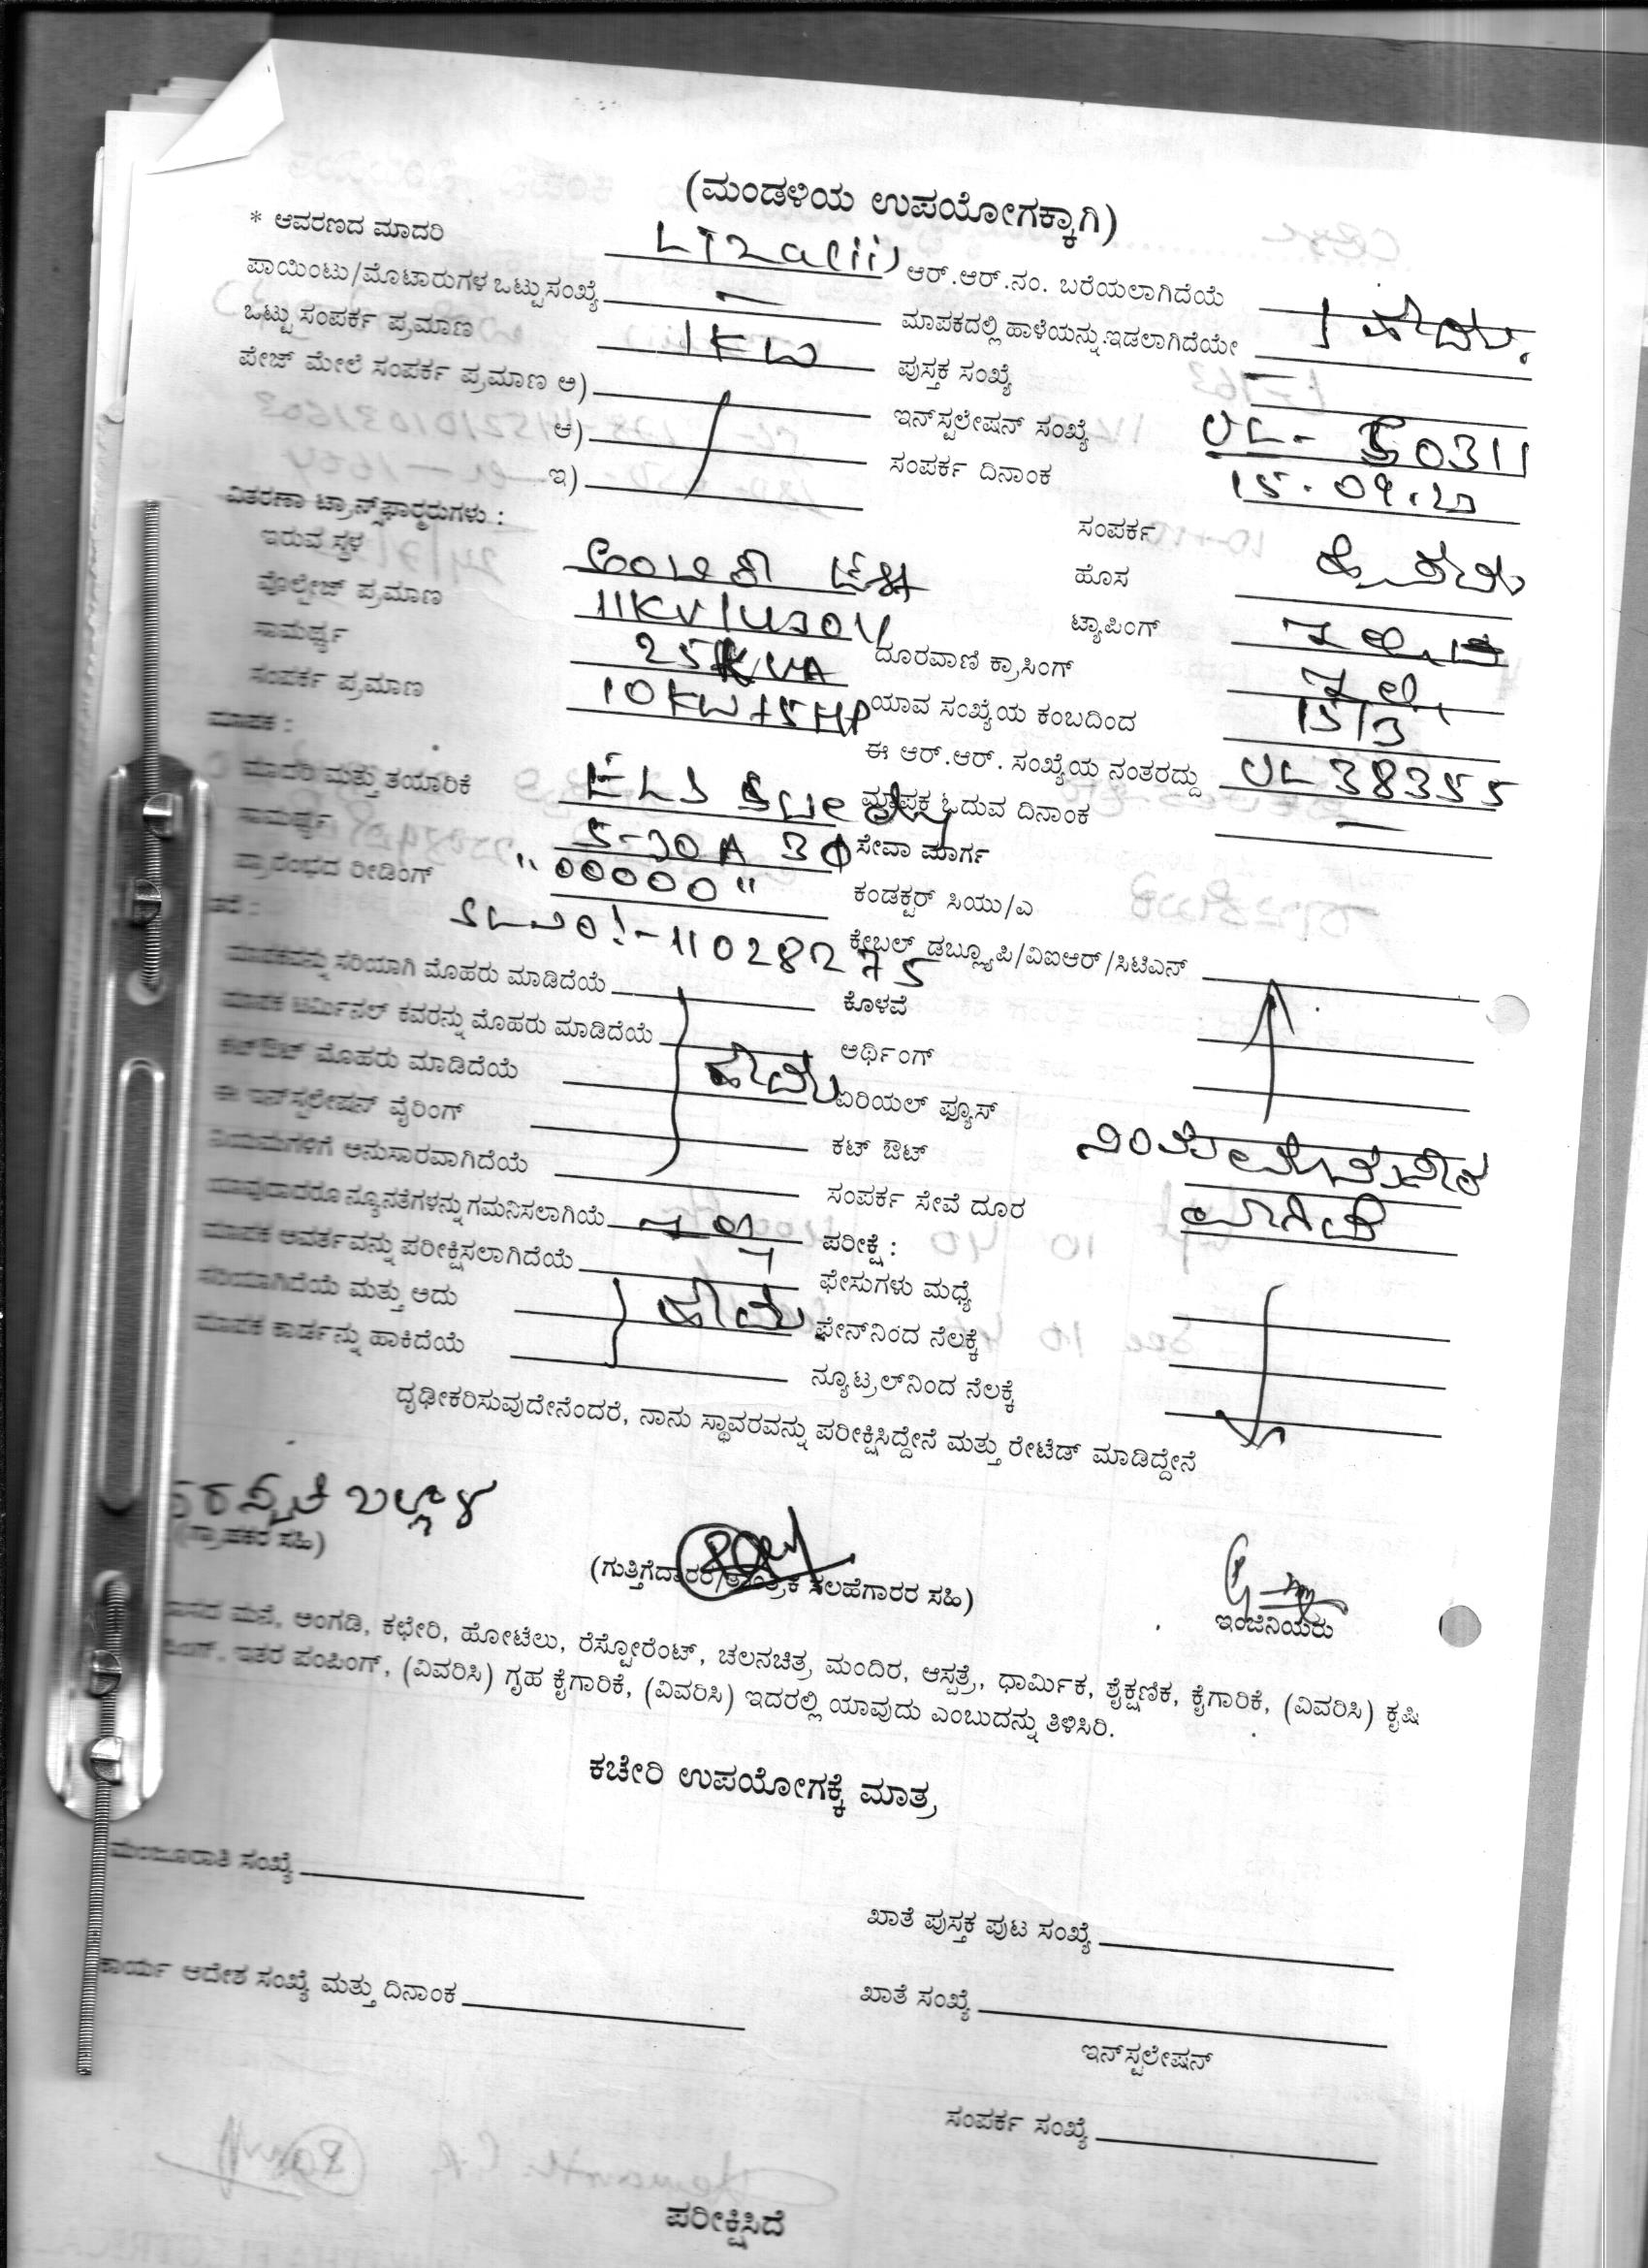 (ಮಂಡಳಿಯ ಉಪಯೋಗಕ್ಕಾಗಿ)
* ಆವರಣದ ಮಾದರಿ LT2a(ii) ಆರ್.ಆರ್.ನಂ. ಬರೆಯಲಾಗಿದೆಯೆ
ಪಾಯಿಂಟು/ಮೊಟಾರುಗಳ ಒಟ್ಟು ಸಂಖ್ಯೆ — ಮಾಪಕದಲ್ಲಿ ಹಾಳೆಯನ್ನು ಇಡಲಾಗಿದೆಯೇ
ಒಟ್ಟು ಸಂಪರ್ಕ ಪ್ರಮಾಣ 1KW ಪುಸ್ತಕ ಸಂಖ್ಯೆ —
ಪೇಜ್ ಮೇಲೆ ಸಂಪರ್ಕ ಪ್ರಮಾಣ ಅ) ಇನ್‌ಸ್ಟಲೇಷನ್ ಸಂಖ್ಯೆ UL-50311
ಆ) ಸಂಪರ್ಕ ದಿನಾಂಕ 15.09.20
ಇ)
ವಿತರಣಾ ಟ್ರಾನ್ಸ್‌ಫಾರ್ಮರುಗಳು : ಸಂಪರ್ಕ
ಇರುವ ಸ್ಥಳ ಹೊಸ
ವೊಲ್ಟೇಜ್ ಪ್ರಮಾಣ 11KV/430V ಟ್ಯಾಪಿಂಗ್
ಸಾಮರ್ಥ್ಯ 25KVA ದೂರವಾಣಿ ಕ್ರಾಸಿಂಗ್
ಸಂಪರ್ಕ ಪ್ರಮಾಣ 10KW+5HP ಯಾವ ಸಂಖ್ಯೆಯ ಕಂಬದಿಂದ 15/3
ಮಾಪಕ : ಈ ಆರ್.ಆರ್. ಸಂಖ್ಯೆಯ ನಂತರದ್ದು UL38355
ಮಾದರಿ ಮತ್ತು ತಯಾರಿಕೆ ಮಾಪಕ ಓದುವ ದಿನಾಂಕ —
ಸಾಮರ್ಥ್ಯ 5-30A 3Φ ಸೇವಾ ಮಾರ್ಗ
ಪ್ರಾರಂಭದ ರೀಡಿಂಗ್ "00000" ಕಂಡಕ್ಟರ್ ಸಿಯು/ಎ
SL No:-11028275 ಕೇಬಲ್ ಡಬ್ಲ್ಯೂಪಿ/ವಿಐಆರ್/ಸಿಟಿಎಸ್
ಮಾಪಕವನ್ನು ಸರಿಯಾಗಿ ಮೊಹರು ಮಾಡಿದೆಯೆ ಕೊಳವೆ
ಮಾಪಕ ಟರ್ಮಿನಲ್ ಕವರನ್ನು ಮೊಹರು ಮಾಡಿದೆಯೆ ಆರ್ಥಿಂಗ್
ಕಟ್‌ಔಟ್ ಮೊಹರು ಮಾಡಿದೆಯೆ ಹೌದು ಏರಿಯಲ್ ಫ್ಯೂಸ್
ಈ ಇನ್‌ಸ್ಟಲೇಷನ್ ವೈರಿಂಗ್ ಕಟ್ ಔಟ್
ನಿಯಮಗಳಿಗೆ ಅನುಸಾರವಾಗಿದೆಯೆ ಸಂಪರ್ಕ ಸೇವೆ ದೂರ
ಯಾವುದಾದರೂ ನ್ಯೂನತೆಗಳನ್ನು ಗಮನಿಸಲಾಗಿಯೆ ಪರೀಕ್ಷೆ :
ಮಾಪಕ ಆವರ್ತವನ್ನು ಪರೀಕ್ಷಿಸಲಾಗಿದೆಯೆ ಫೇಸುಗಳು ಮಧ್ಯೆ
ಸರಿಯಾಗಿದೆಯೆ ಮತ್ತು ಅದು ಹೌದು ಫೇಸ್‌ನಿಂದ ನೆಲಕ್ಕೆ
ಮಾಪಕ ಕಾರ್ಡನ್ನು ಹಾಕಿದೆಯೆ ನ್ಯೂಟ್ರಲ್‌ನಿಂದ ನೆಲಕ್ಕೆ
ದೃಢೀಕರಿಸುವುದೇನೆಂದರೆ, ನಾನು ಸ್ಥಾವರವನ್ನು ಪರೀಕ್ಷಿಸಿದ್ದೇನೆ ಮತ್ತು ರೇಟೆಡ್ ಮಾಡಿದ್ದೇನೆ
(ಗ್ರಾಹಕರ ಸಹಿ)
(ಗುತ್ತಿಗೆದಾರರ/ತಾಂತ್ರಿಕ ಸಲಹೆಗಾರರ ಸಹಿ)
ಇಂಜಿನಿಯರು
ವಾಸದ ಮನೆ, ಅಂಗಡಿ, ಕಛೇರಿ, ಹೋಟೆಲು, ರೆಸ್ಟೋರೆಂಟ್, ಚಲನಚಿತ್ರ ಮಂದಿರ, ಆಸ್ಪತ್ರೆ, ಧಾರ್ಮಿಕ, ಶೈಕ್ಷಣಿಕ, ಕೈಗಾರಿಕೆ, (ವಿವರಿಸಿ) ಕೃಷಿ
ಇತರ ಪಂಪಿಂಗ್, (ವಿವರಿಸಿ) ಗೃಹ ಕೈಗಾರಿಕೆ, (ವಿವರಿಸಿ) ಇದರಲ್ಲಿ ಯಾವುದು ಎಂಬುದನ್ನು ತಿಳಿಸಿರಿ.
ಕಚೇರಿ ಉಪಯೋಗಕ್ಕೆ ಮಾತ್ರ
ಮಂಜೂರಾತಿ ಸಂಖ್ಯೆ
ಖಾತೆ ಪುಸ್ತಕ ಪುಟ ಸಂಖ್ಯೆ
ಕಾರ್ಯ ಆದೇಶ ಸಂಖ್ಯೆ ಮತ್ತು ದಿನಾಂಕ ಖಾತೆ ಸಂಖ್ಯೆ
ಇನ್‌ಸ್ಟಲೇಷನ್
ಸಂಪರ್ಕ ಸಂಖ್ಯೆ
ಪರೀಕ್ಷಿಸಿದೆ